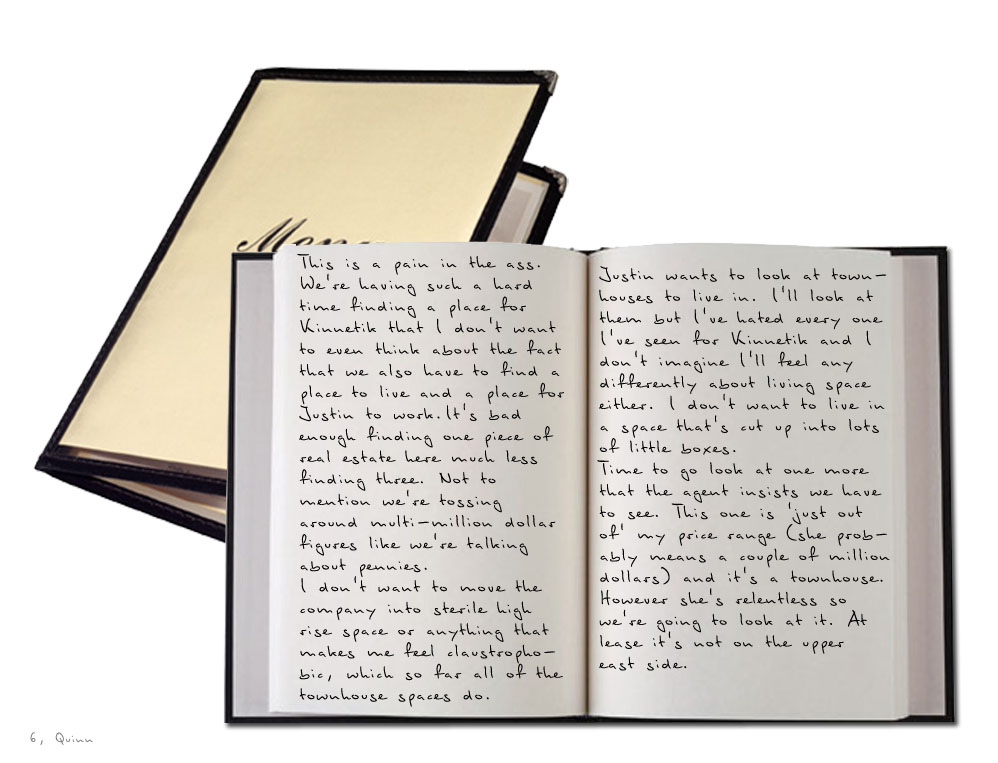 Menu
This is a pain in the ass.
We're having such a hard
time finding a place for
Kinnetik that I don't want
to even think about the fact
that we also have to find a
place to live and a place for
Justin to work. It's bad
enough finding one piece of
real estate here much less
finding three. Not to
mention we're tossing
around multi-million dollar
figures like we're talking
about pennies.
I don't want to move the
company into sterile high
rise space or anything that
makes me feel claustropho-
bic, which so far all of the
townhouse spaces do.
Justin wants to look at town-
houses to live in. I'll look at
them but I've hated every one
I've seen for Kinnetik and I
don't imagine I'll feel any
differently about living space
either. I don't want to live in
a space that's cut up into lots
of little boxes.
Time to go look at one more
that the agent insists we have
to see. This one is 'just out
of' my price range (she prob-
ably means a couple of million
dollars) and it's a townhouse.
However she's relentless so
we're going to look at it. At
lease it's not on the upper
east side.
6, Quinn